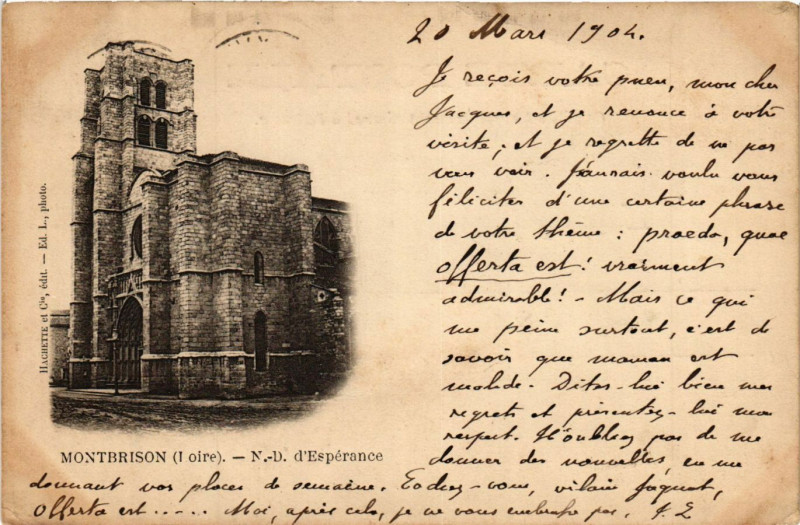 20 Mars 1904.
Je reçois votre pneu, mon cher
Jacques, et je renonce à votre
visite ; et je regrette de ne pas
vous voir. J'aurais voulu vous
féliciter d'une certaine phrase
de votre thème : praeda, quae
offerta est ! vraiment
admirable ! - Mais ce qui
me peine surtout, c'est de
savoir que maman est
malade. Dites-lui bien mes
regrets et présentez-lui mon
respect. N'oubliez pas de me
donner des nouvelles, en me
donnant vos places de semaine. vous, vilain Jacquot,
Offerta est ..... Moi, après cela, je ne vous embrasse pas.
HACHETTE et Cie, édit. — Ed. L., photo.
MONTBRISON (Loire). — N.-D. d'Espérance